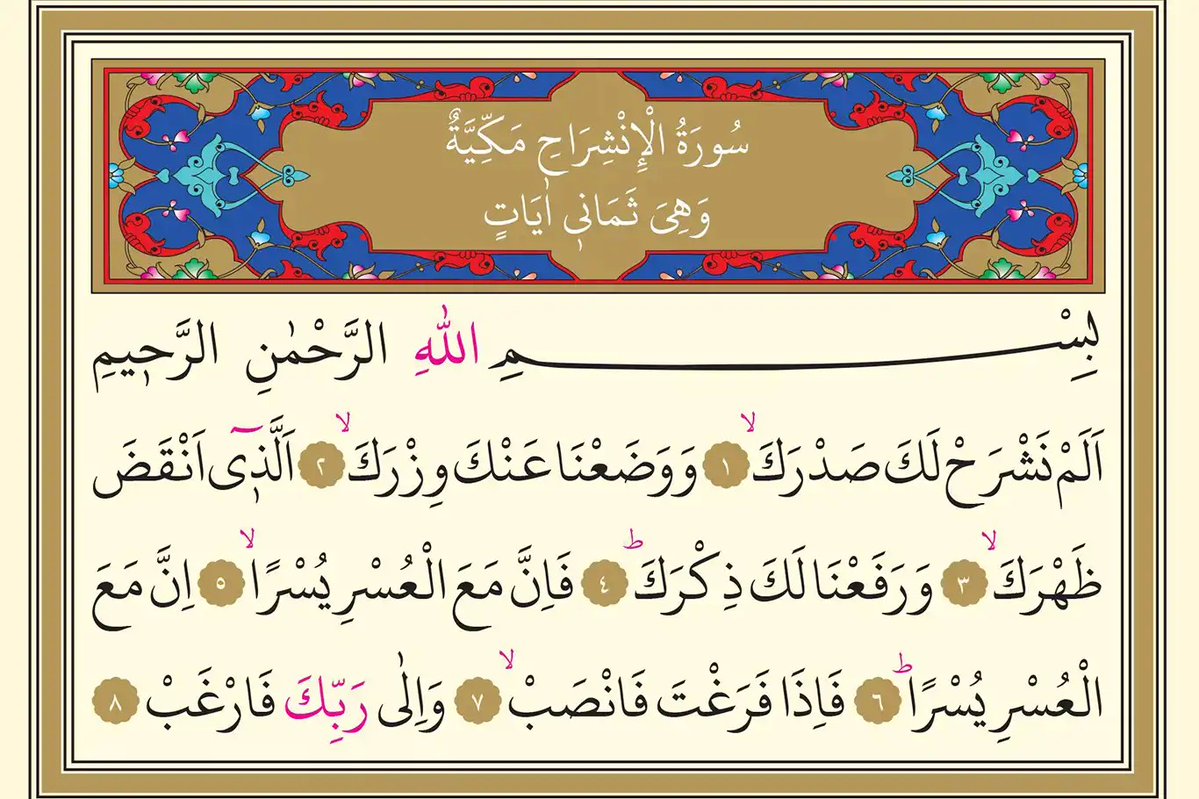 سُورَةُ الْإِنْشِرَاحِ مَكِّيَّةٌ
وَهِيَ ثَمَانٖي اٰيَاتٍ
بِسْمِ اللّٰهِ الرَّحْمٰنِ الرَّحٖيمِ
اَلَمْ نَشْرَحْ لَكَ صَدْرَكَۙ ﴿١﴾ وَوَضَعْنَا عَنْكَ وِزْرَكَۙ ﴿٢﴾ اَلَّذٖٓى اَنْقَضَ
ظَهْرَكَۙ ﴿٣﴾ وَرَفَعْنَا لَكَ ذِكْرَكَؕ ﴿٤﴾ فَاِنَّ مَعَ الْعُسْرِ يُسْرًاۙ ﴿٥﴾ اِنَّ مَعَ
الْعُسْرِ يُسْرًاؕ ﴿٦﴾ فَاِذَا فَرَغْتَ فَانْصَبْۙ ﴿٧﴾ وَاِلٰى رَبِّكَ فَارْغَبْ ﴿٨﴾